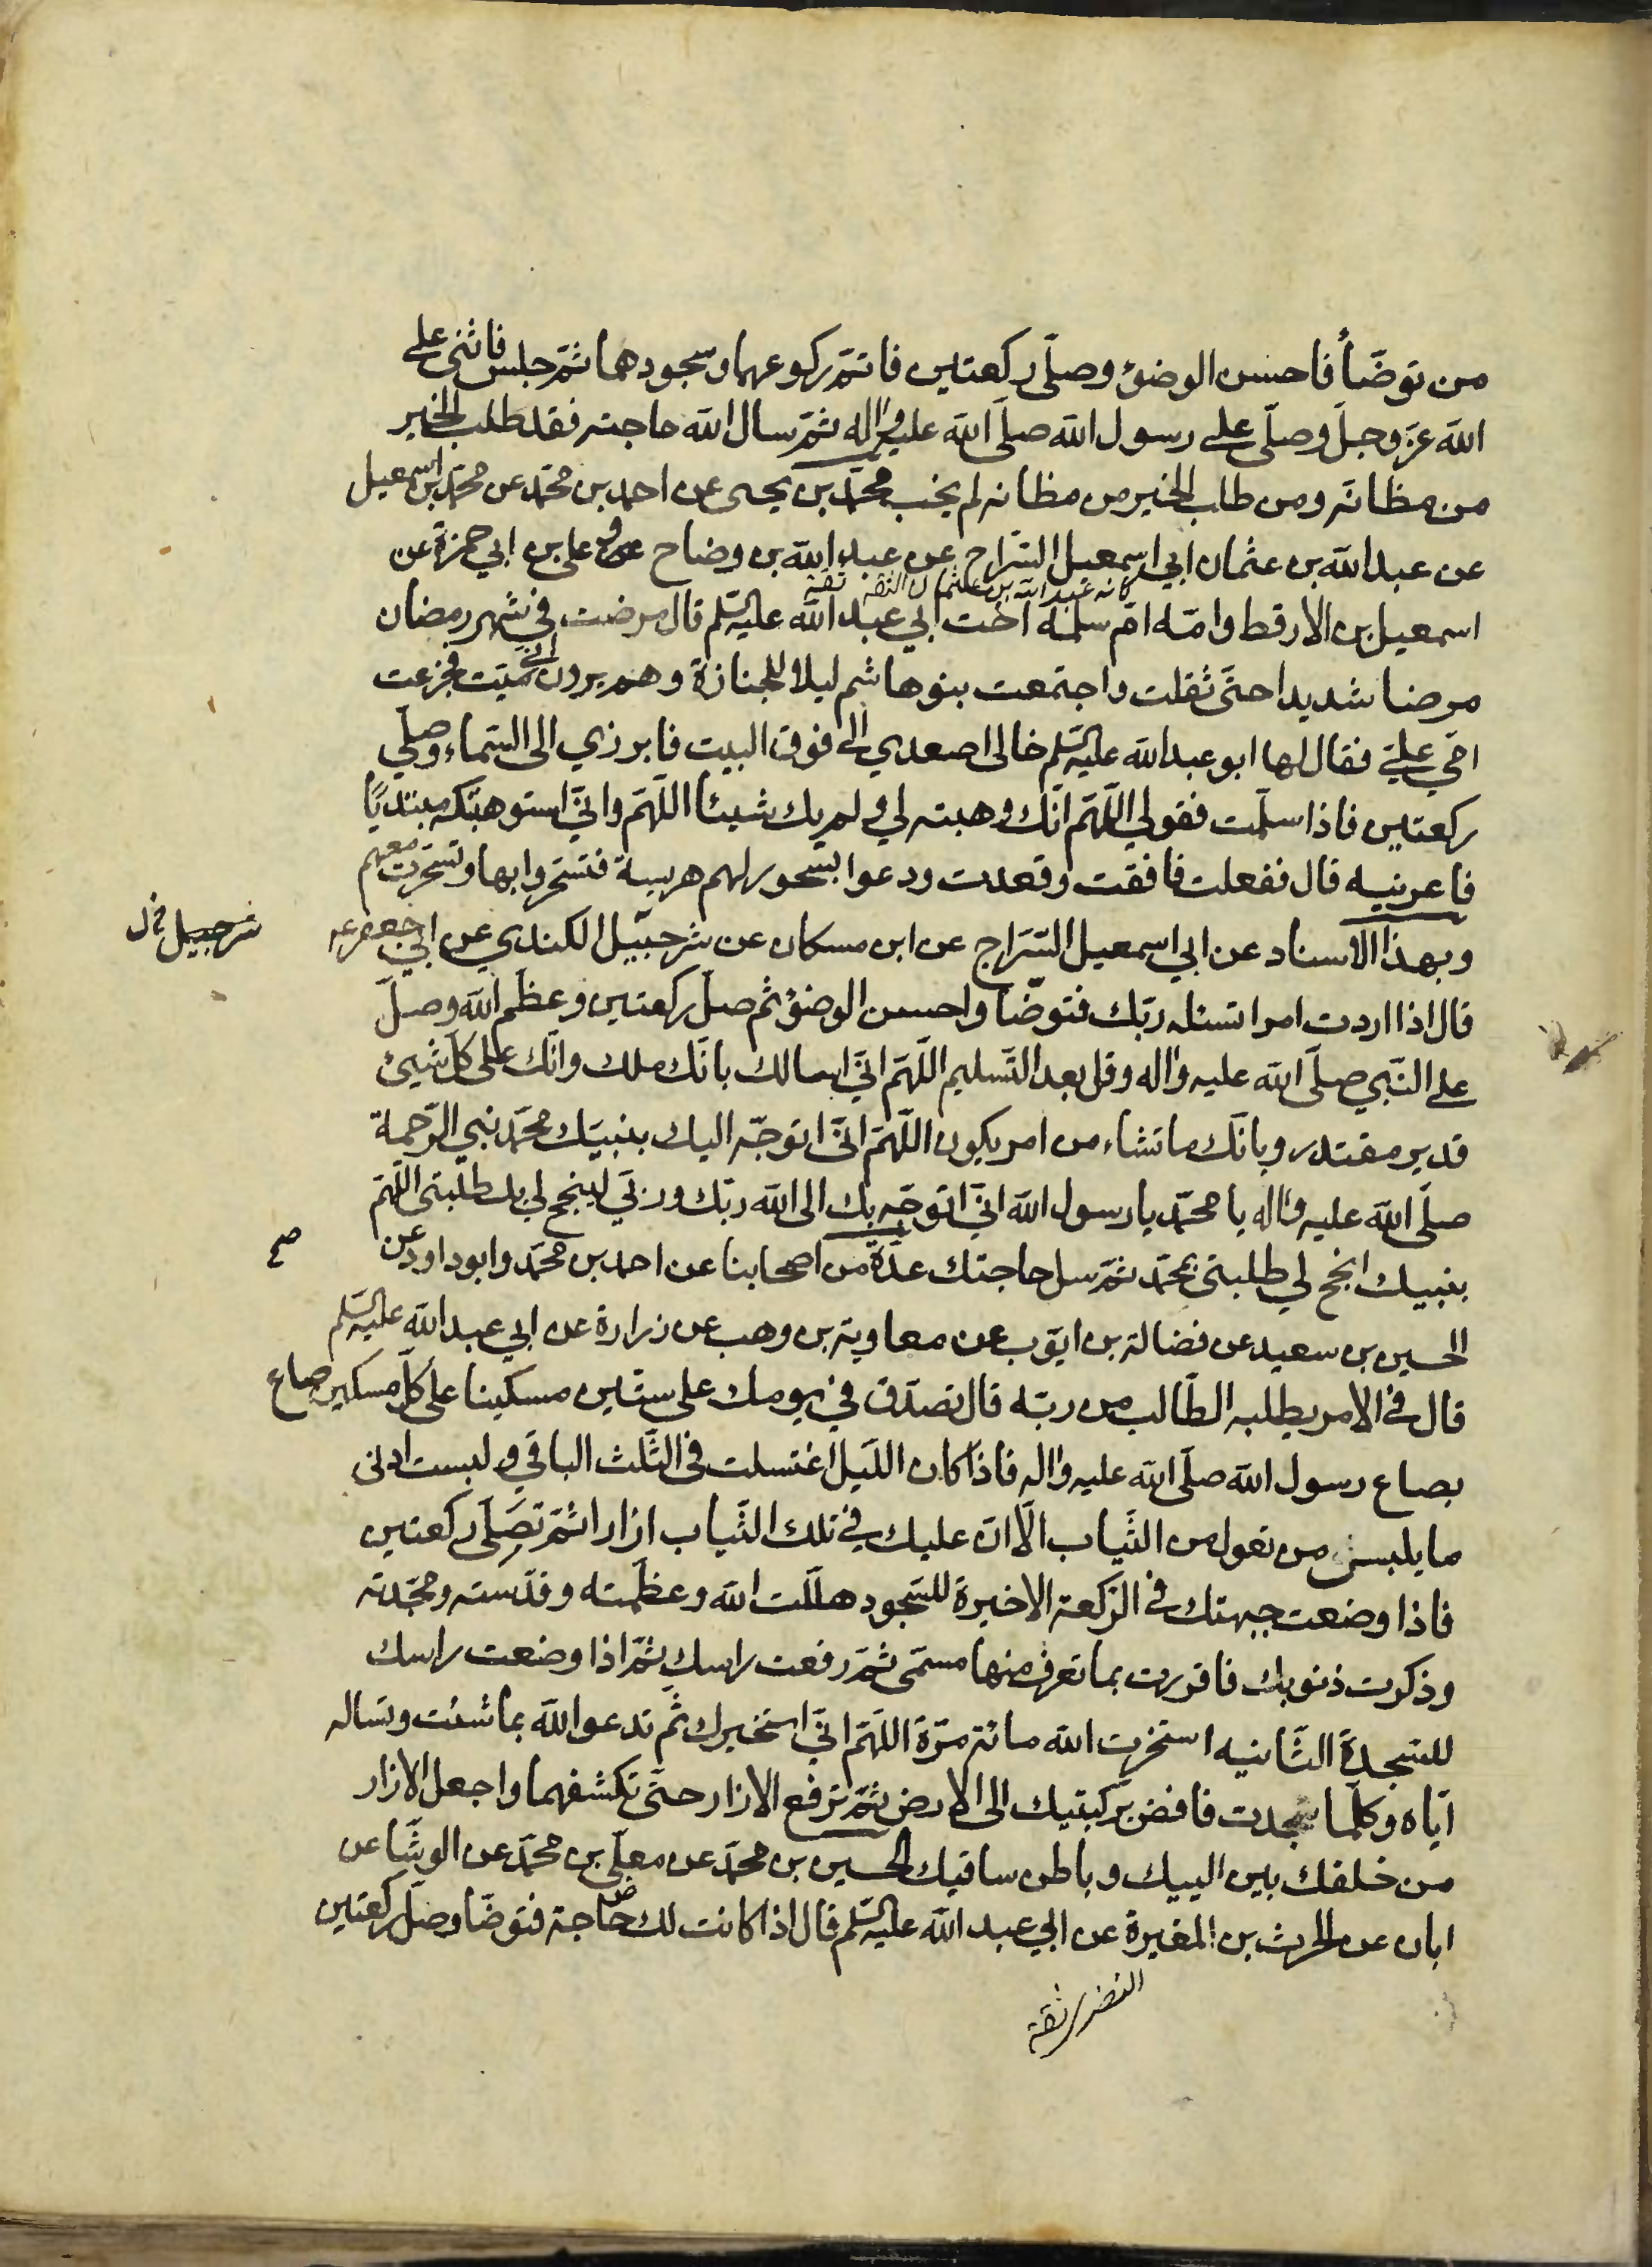 من توضّأ فاحسن الوضؤ وصلّى ركعتين فاتمّ ركوعهما وسجودهما ثمّ جلس فاثنى على
الله عزّ وجلّ وصلّى على رسول الله صلّى الله عليه واله ثمّ سال الله حاجته فقد طلب الخير
من مظانّه ومن طلب الخير من مظانه لم يخب محمّد بن يحيى عن احمد بن محمّد عن محمّد بن اسمعيل
عن عبد الله بن عثمان ابي اسمعيل السّراج عن عبد الله بن وضاح وعلى بن ابي حمزة عن
كانه عبد الله بن عثمان الثقه ثقة
اسمعيل بن الارقط وامّه امّ سلمه اخت ابي عبد الله عليه السّلم قال مرضت في شهر رمضان
مرضا شديدا حتّى ثقلت واجتمعت بنوهاشم ليلا للجنازة وهم يرون انّي ميّت فجزعت
امّي علىّ فقال لها ابو عبد الله عليه السّلم خالى اصعدي الى فوق البيت فابرزي الى السّماء وصلّي
ركعتين فاذا سلّمت فقولي اللّهمّ انّك وهبته لي ولم يك شيئا اللّهمّ وانّي استوهبتكه مبتديًا
فاعرنيه قال ففعلت فافقت وقعدت ودعوا بسحور لهم هريسة فتسحّروا بها وتسحّرت معهم
وبهذا الاسناد عن ابي اسمعيل السّرّاج عن ابن مسكان عن شرحبيل الكندي عن ابي جعفر عه
شرحبيل خ ل
قال اذا اردت امرا تسئله ربّك فتوضّا واحسن الوضؤ ثم صلّ ركعتين وعظّم الله وصلّ
على النّبي صلّى الله عليه واله وقل بعد التّسليم اللّهمّ انّي اسالك بانّك ملك وانّك على كلّ شيئ
قدير مقتدر وبانّك ما تشاء من امر يكون اللّهمّ انّي اتوجّه اليك بنبيّك محمّد نبي الرّحمة
صلّى الله عليه واله يا محمّد يا رسول الله انّي اتوجّه بك الى الله ربّك وربّي لينجح لي بك طلبتى اللّهمّ
بنبيك انجح لي طلبتى بمحمّد ثمّ سل حاجتك عدّة من اصحابنا عن احمد بن محمّد وابو داود عن
صح
الحسين بن سعيد عن فضالة بن ايّوب عن معاوية بن وهب عن زرارة عن ابي عبد الله عليه السّلم
قال في الامر يطلبه الطّالب من ربّه قال تصدّق في يومك على ستّين مسكينا على كلّ مسكين صاع
بصاع رسول الله صلّى الله عليه واله فاذا كان اللّيل اغتسلت في الثّلث الباقي ولبست ادنى
ما يلبس من تعول من الثّياب الّا انّ عليك في تلك الثّياب ازارا ثمّ تصَلّى ركعتين
فاذا وضعت جبهتك في الرّكعة الاخيرة للسّجود هلّلت الله وعظّمته وقدّسته ومجّدته
وذكرت ذنوبك فاقررت بما تعرف منها مسمّى ثمّ رفعت راسك ثمّ اذا وضعت راسك
للسّجدة الثّانيه استخرت الله مائة مرّة اللّهمّ انّي استخيرك ثم تدعوا الله بما شئت وتساله
ايّاه وكلّما سجدت فافض بركبتيك الى الارض ثمّ ترفع الازار حتّى تكشفهما واجعل الازار
من خلفك بين الييك وباطن ساقيك الحسين بن محمّد عن معلّى بن محمّد عن الوشّا عن
ابان عن الحرث بن المغيرة عن ابي عبد الله عليه السّلم قال اذا كانت لك حاجة فتوضّا وصلّ ركعتين
النضر ثقة